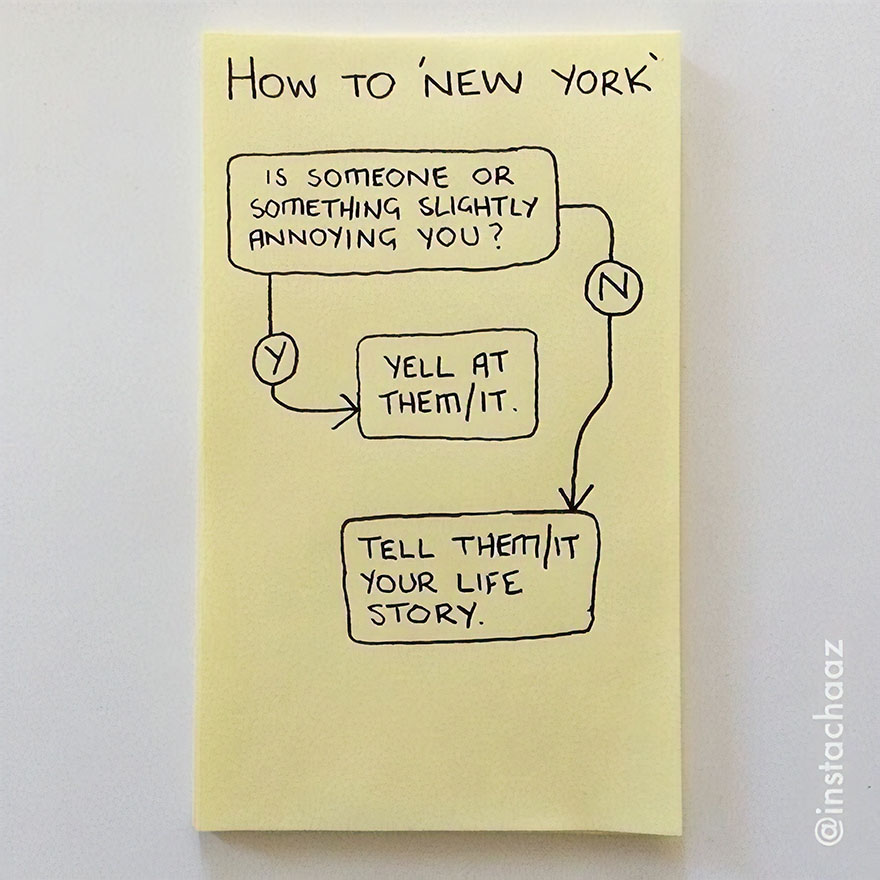 HOW TO 'NEW YORK'
IS SOMEONE OR
SOMETHING SLIGHTLY
ANNOYING YOU?
N
Y
YELL AT
THEM/IT.
TELL THEM/IT
YOUR LIFE
STORY.
@instachaaz